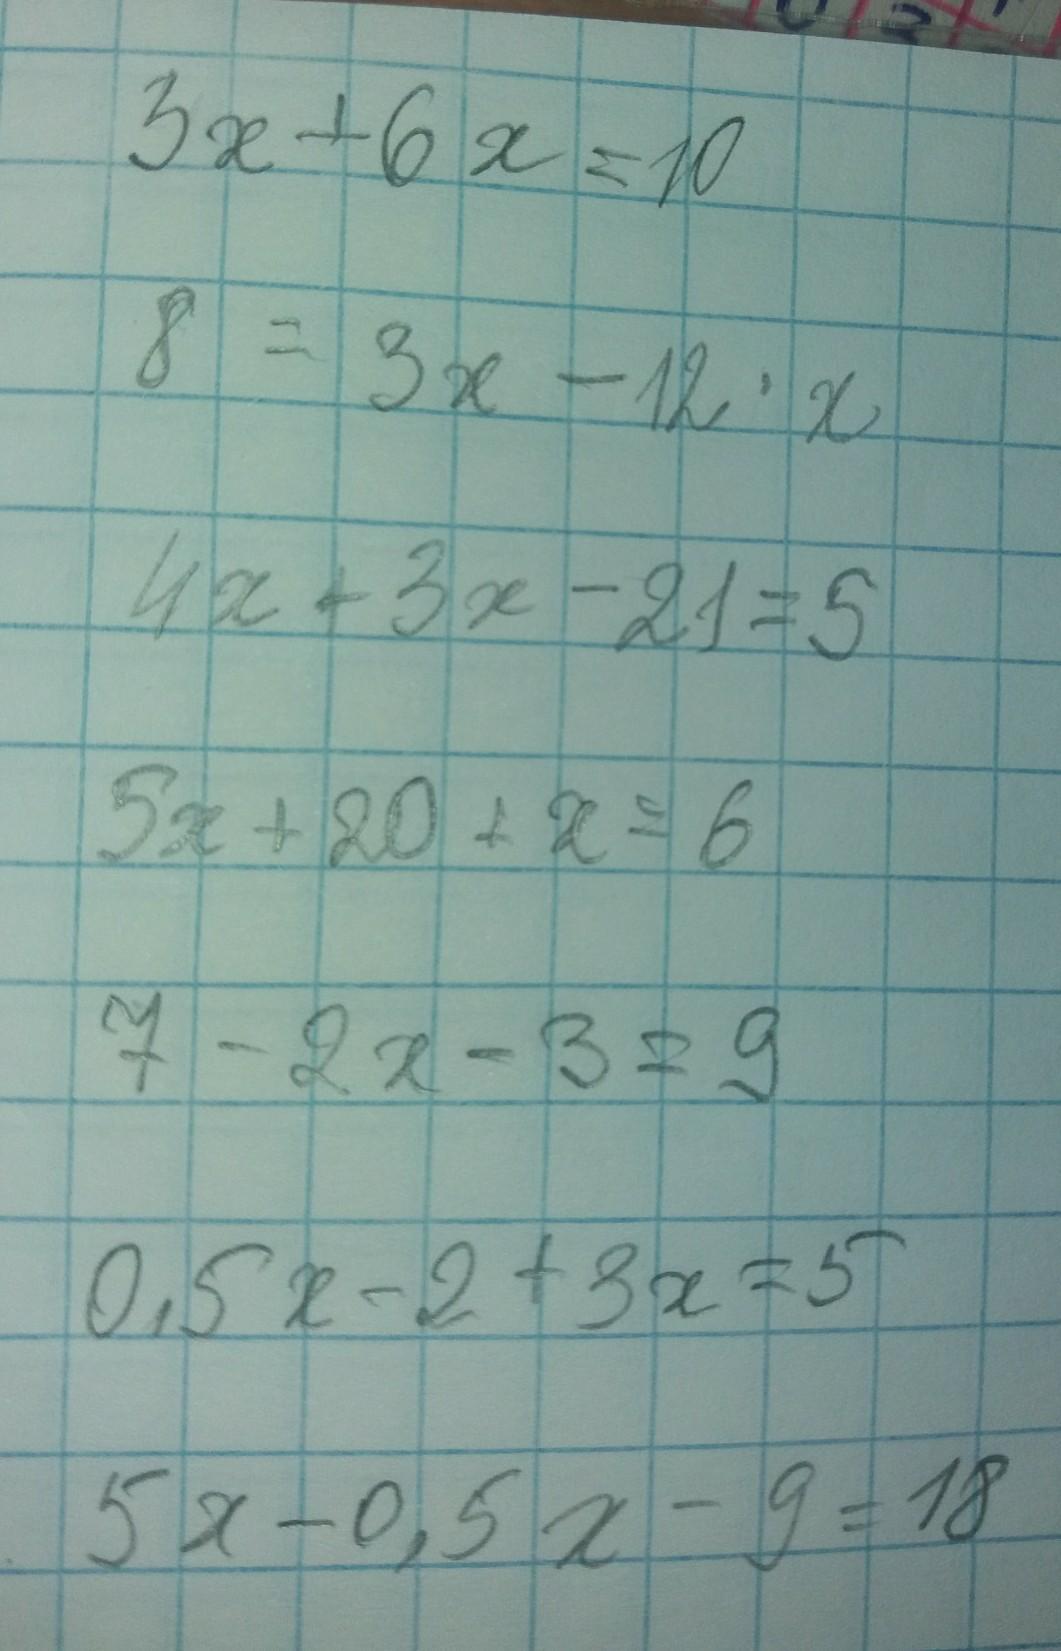 3x+6x=10
8 = 3x - 12 · x
4x + 3x - 21 = 5
5x + 20 + x = 6
7 - 2x - 3 = 9
0,5x - 2 + 3x = 5
5x - 0,5x - 9 = 18